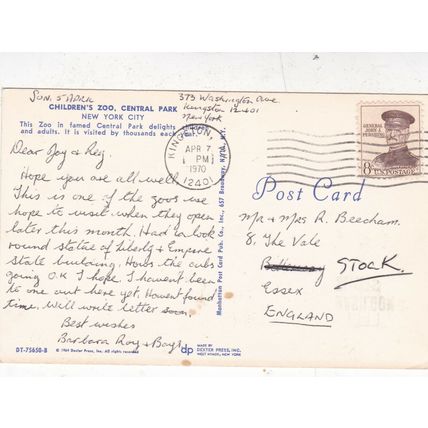 SUN. 5 APRIL
CHILDREN'S ZOO, CENTRAL PARK
NEW YORK CITY
This Zoo in famed Central Park delights
and adults. It is visited by thousands each year.
373 Washington Ave
Kingston 12401
New York
Dear Joy & Reg,
Hope you are all well.
This is one of the zoos we
hope to visit when they open
later this month. Had a look
round statue of Liberty & Empire
State building. Hows the cubs
going O.K I hope. I havent been
to one out here yet. Havent found
time. Will write letter soon,
Best wishes
Barbara Roy & Boys
DT-75650-B
© 1964 Dexter Press, Inc. All rights reserved
Manhattan Post Card Pub. Co., Inc., 657 Broadway, N.Y., N.Y.
dp
MADE BY
DEXTER PRESS, INC.
WEST NYACK, NEW YORK
KINGSTON,
APR 7
PM
1970
12401
GENERAL
JOHN J.
PERSHING
8c U.S. POSTAGE
Post Card
Mr & Mrs R. Beecham.
8, The Vale
STOCK.
Essex
ENGLAND